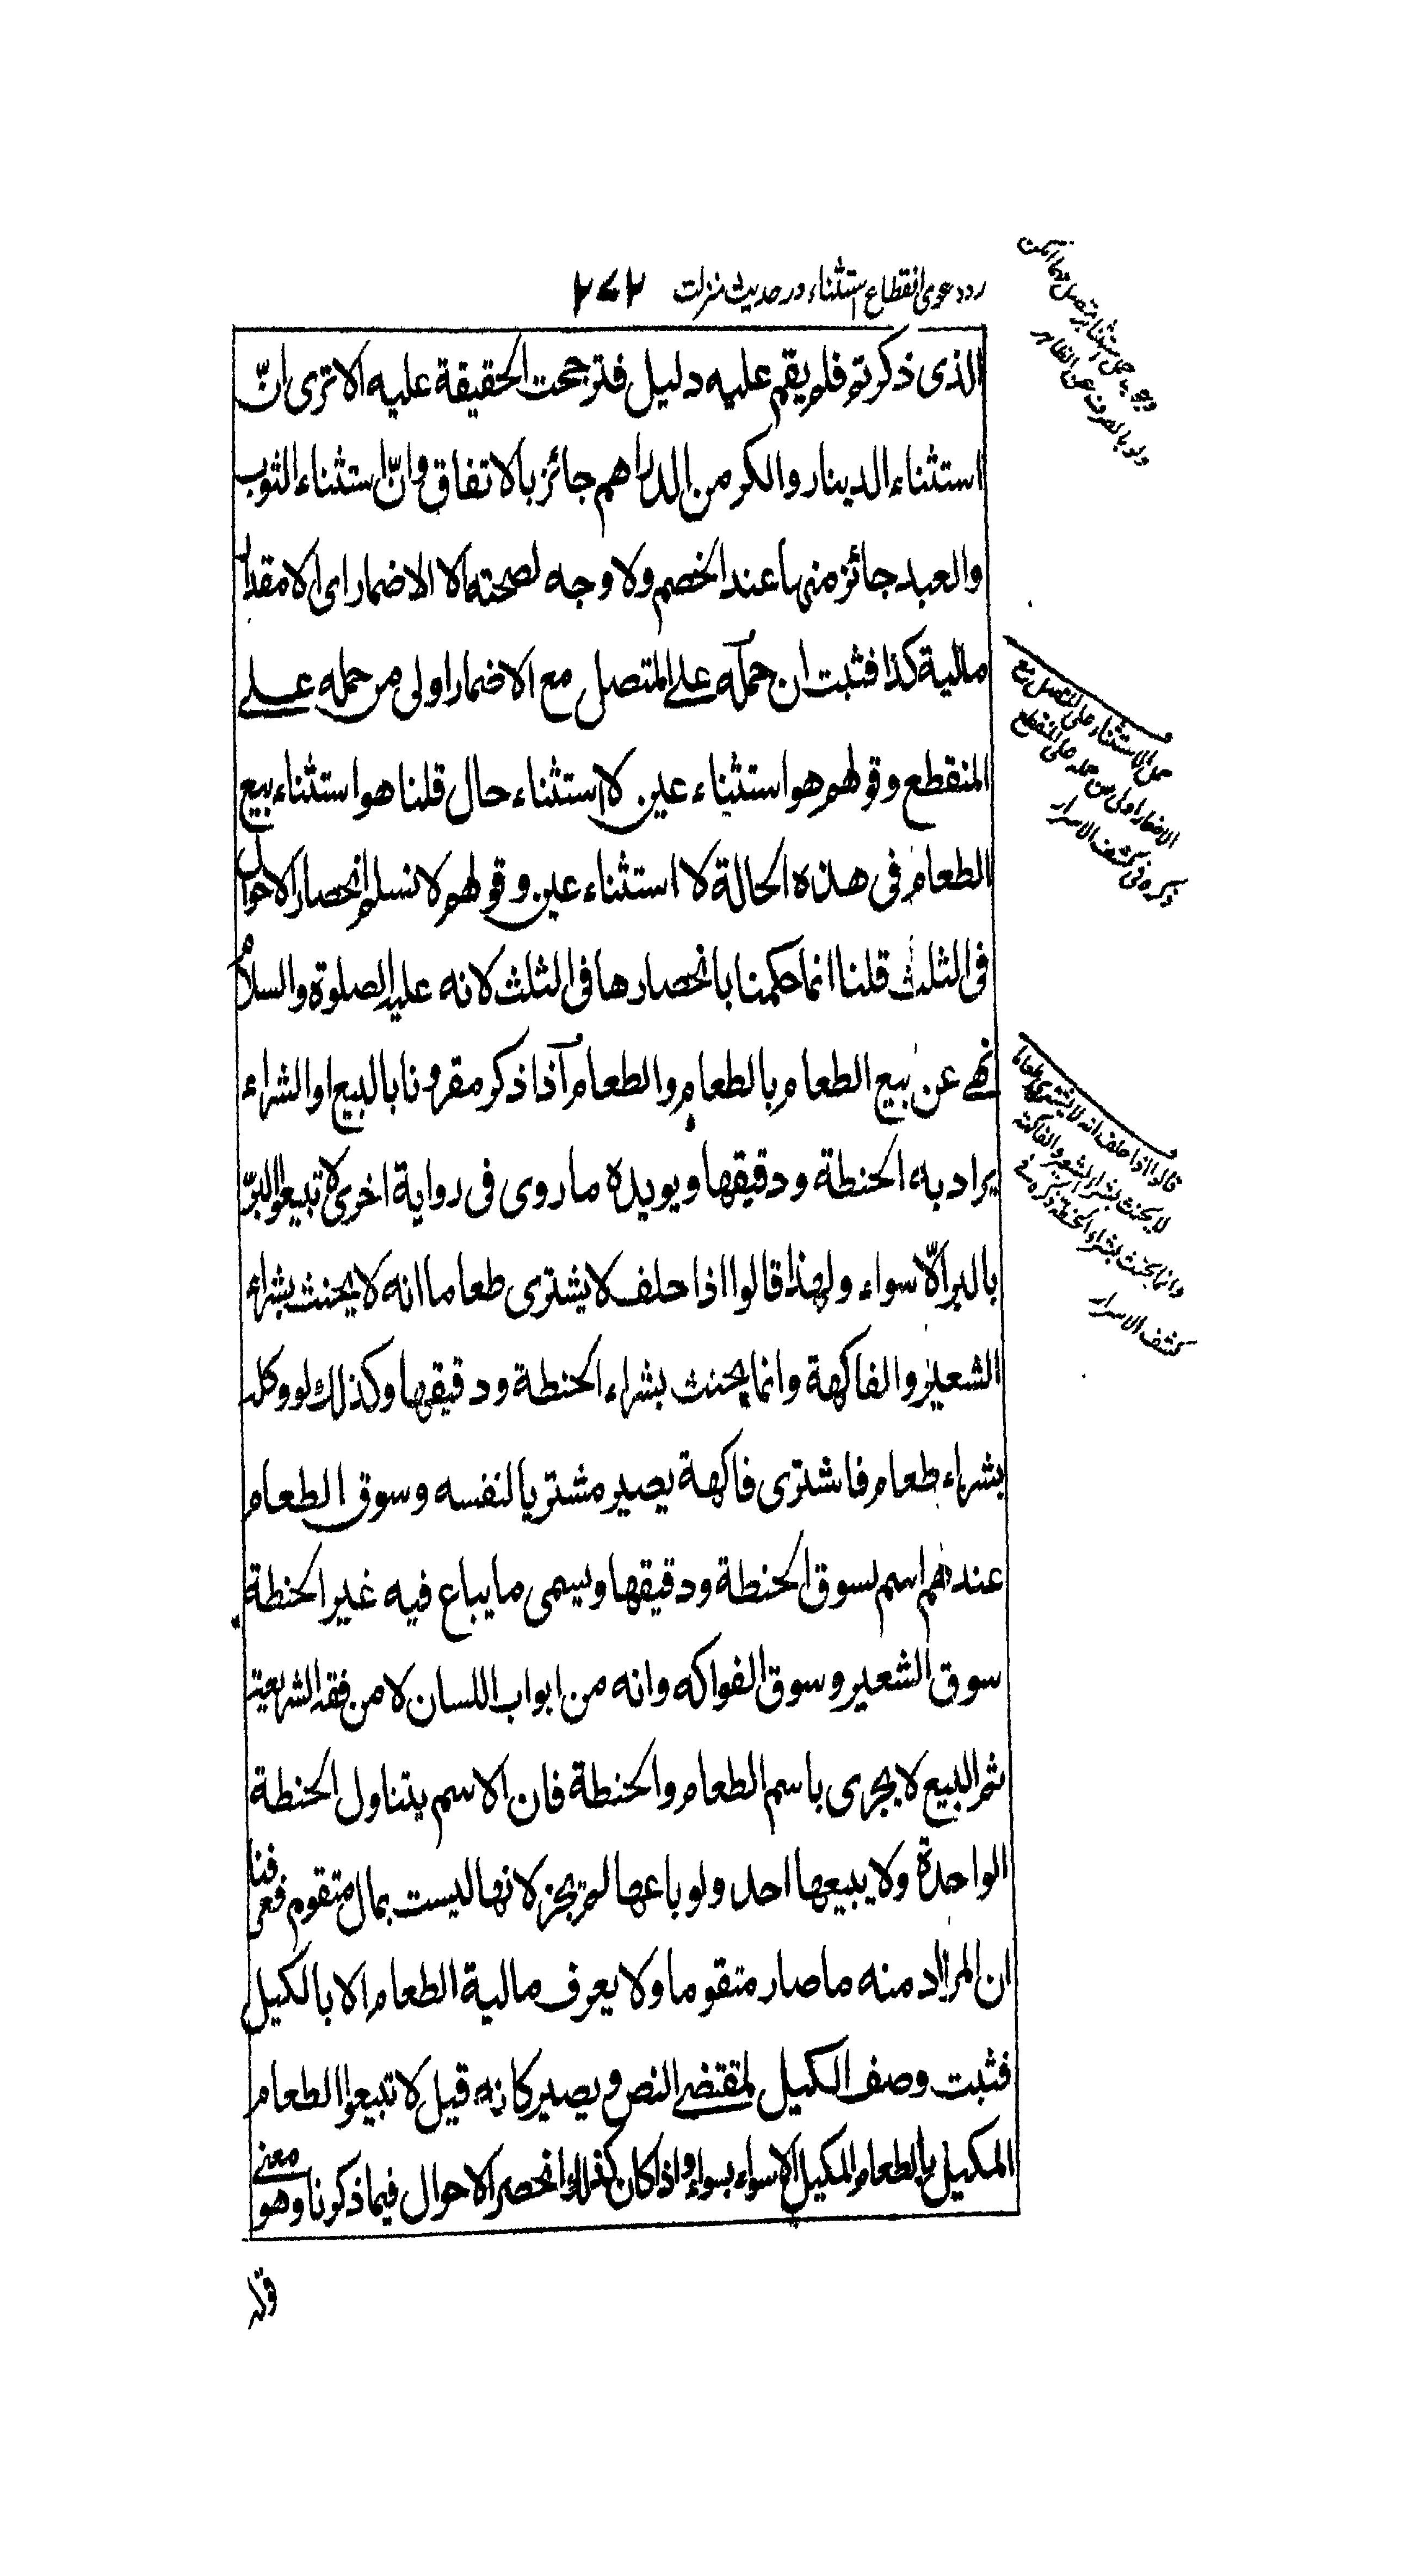 رد دعوی انقطاع استثناء در حدیث منزلت ٢٧٢
الذى ذكرتم فلم يقم عليه دليل فترجحت الحقيقة عليه الا ترى انّ
استثناء الدينار والكر من الدراهم جائز بالاتفاق وانّ استثناء الثوب
والعبد جائز منها عند الخصم ولا وجه لصحته الا الاضمار اى الا مقدار
مالية كذا فثبت ان حمله على المتصل مع الاضمار اولى من حمله على
المنقطع وقولهم هو استثناء عين لا استثناء حال قلنا هو استثناء بيع
الطعام فى هذه الحالة لا استثناء عين وقولهم لا نسلم انحصار الاحوال
فى الثلث قلنا انما حكمنا بانحصارها فى الثلث لانه عليه الصلوة والسلام
نهى عن بيع الطعام بالطعام والطعام اذا ذكر مقرونا بالبيع او الشراء
يراد به الحنطة ودقيقها ويويده ما روى فى رواية اخرى لا تبيعوا البرّ
بالبر الّا سواء ولهذا قالوا اذا حلف لا يشترى طعاما انه لا يحنث بشراء
الشعير والفاكهة وانما يحنث بشراء الحنطة ودقيقها وكذلك لو وكله
بشراء طعام فاشترى فاكهة يصير مشتريا لنفسه وسوق الطعام
عندهم اسم لسوق الحنطة ودقيقها ويسمى ما يباع فيه غير الحنطة
سوق الشعير وسوق الفواكه وانه من ابواب اللسان لا من فقه الشريعة
ثم البيع لا يجرى باسم الطعام والحنطة فان الاسم يتناول الحنطة
الواحدة ولا يبيعها احد ولو باعها لم يجز لانها ليست بمال متقوم فعرفنا
ان المراد منه ما صار متقوما ولا يعرف مالية الطعام الا بالكيل
فثبت وصف الكيل لمقتضى النص ويصير كانه قيل لا تبيعوا الطعام
المكيل بالطعام المكيل الا سواء بسواء واذا كان كذلك انحصر الاحوال فيما ذكرنا وهو معنى
قوله
وجوب حمل استثناء بر متصل مهما امكن
ولو بالصرف عن الظاهر
حمل الاستثناء على المتصل مع
الاضمار اولى من حمله على المنقطع
ذكره فى كشف الاسرار
قالوا اذا حلف انه لا يشترى طعاما
لا يحنث بشراء الشعير والفاكهة
وانما يحنث بشراء الحنطة ذكره فى
كشف الاسرار